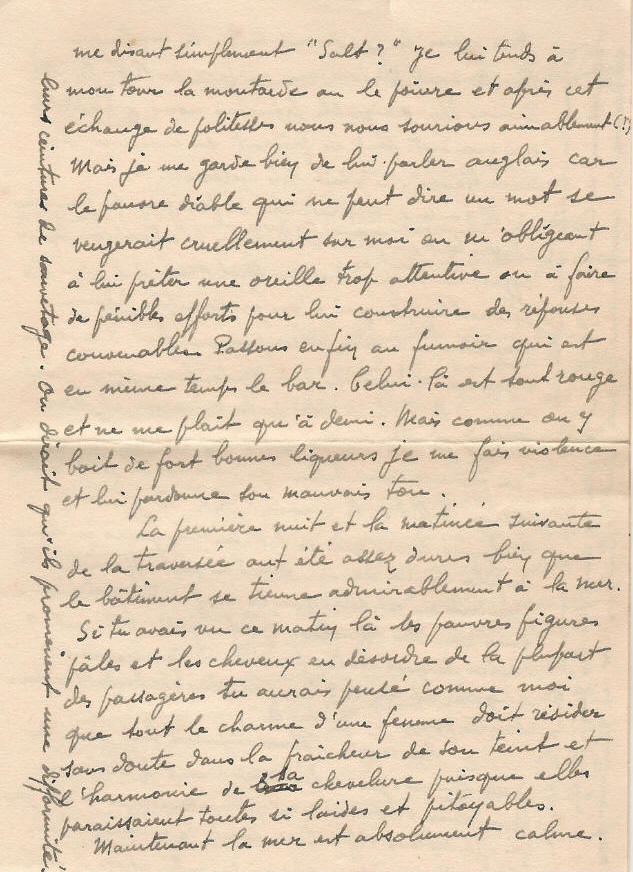 me disant simplement "Salt ?" Je lui tends à
mon tour la moutarde ou le poivre et après cet
échange de politesses nous nous sourions aimablement (!)
Mais je me garde bien de lui parler anglais car
le pauvre diable qui ne peut dire un mot se
vengerait cruellement sur moi en m'obligeant
à lui prêter une oreille trop attentive ou à faire
de pénibles efforts pour lui construire des réponses
convenables. Passons enfin au fumoir qui est
en même temps le bar. Celui-là est tout rouge
et ne me plait qu'à demi. Mais comme on y
boit de fort bonnes liqueurs je me fais violence
et lui pardonne son mauvais ton.
La première nuit et la matinée suivante
de la traversée ont été assez dures bien que
le bâtiment se tienne admirablement à la mer.
Si tu avais vu ce matin là les pauvres figures
pâles et les cheveux en désordre de la plupart
des passagères tu aurais pensé comme moi
que tout le charme d'une femme doit résider
sans doute dans la fraicheur de son teint et
l'harmonie de la chevelure puisque elles
paraissaient toutes si laides et pitoyables.
Maintenant la mer est absolument calme.
leurs ceintures de sauvetage. On dirait qu'ils promènent une difformité.